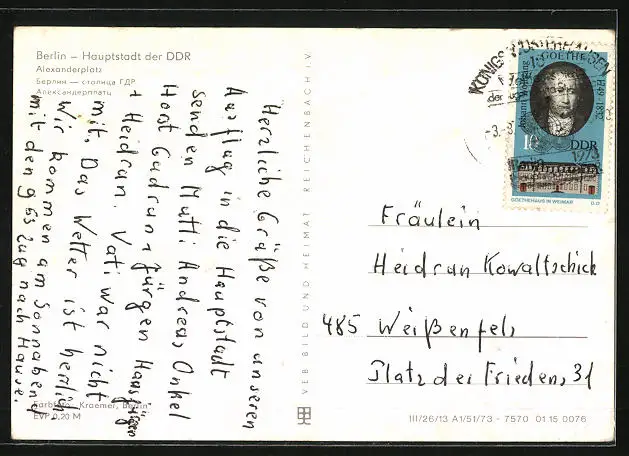 Berlin – Hauptstadt der DDR
Alexanderplatz
Берлин — столица ГДР
Александерплатц
Herzliche Grüße von unseren
Ausflug in die Hauptstadt
senden Mutti Andreas, Onkel
Horst Gudrun + Jürgen Hansjürgen
+ Heidrun. Vati war nicht
mit. Das Wetter ist herrlich
Wir kommen am Sonnabend
mit den 9 63 Zug nach Hause.
Farbfoto: Kraemer, Berlin
EVP 0,20 M
VEB BILD UND HEIMAT REICHENBACH i.V.
KÖNIGS WUSTERHAUSEN
-3.-8.
1973
Johann Wolfgang
GOETHE
1749-1832
10
DDR
GOETHEHAUS IN WEIMAR
Fräulein
Heidrun Kowaltschick
485 Weißenfels
Platz des Friedens 31
III/26/13 A1/51/73 - 7570 01 15 0076